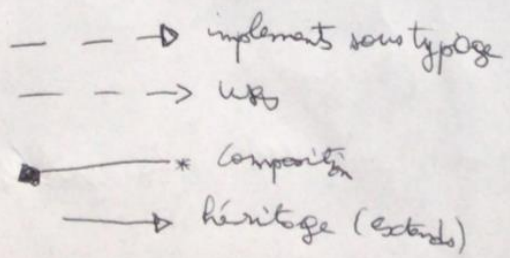 implements sous typage
uses
* composition
héritage (extends)